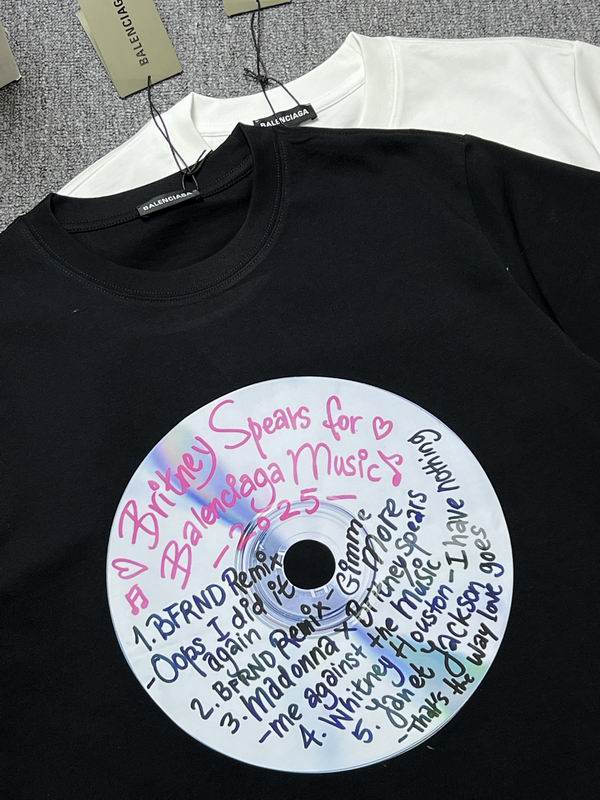 BALENCIAGA
BALENCIAGA
BALENCIAGA
Britney Spears for
Balenciaga Music
- 2025 -
1. BFRND Remix
-Oops I did it
again
2. BFRND Remix - Gimme
More
3. Madonna x Britney Spears
-me against the Music
4. Whitney Houston - I have nothing
5. Janet Jackson
-That's the way love goes